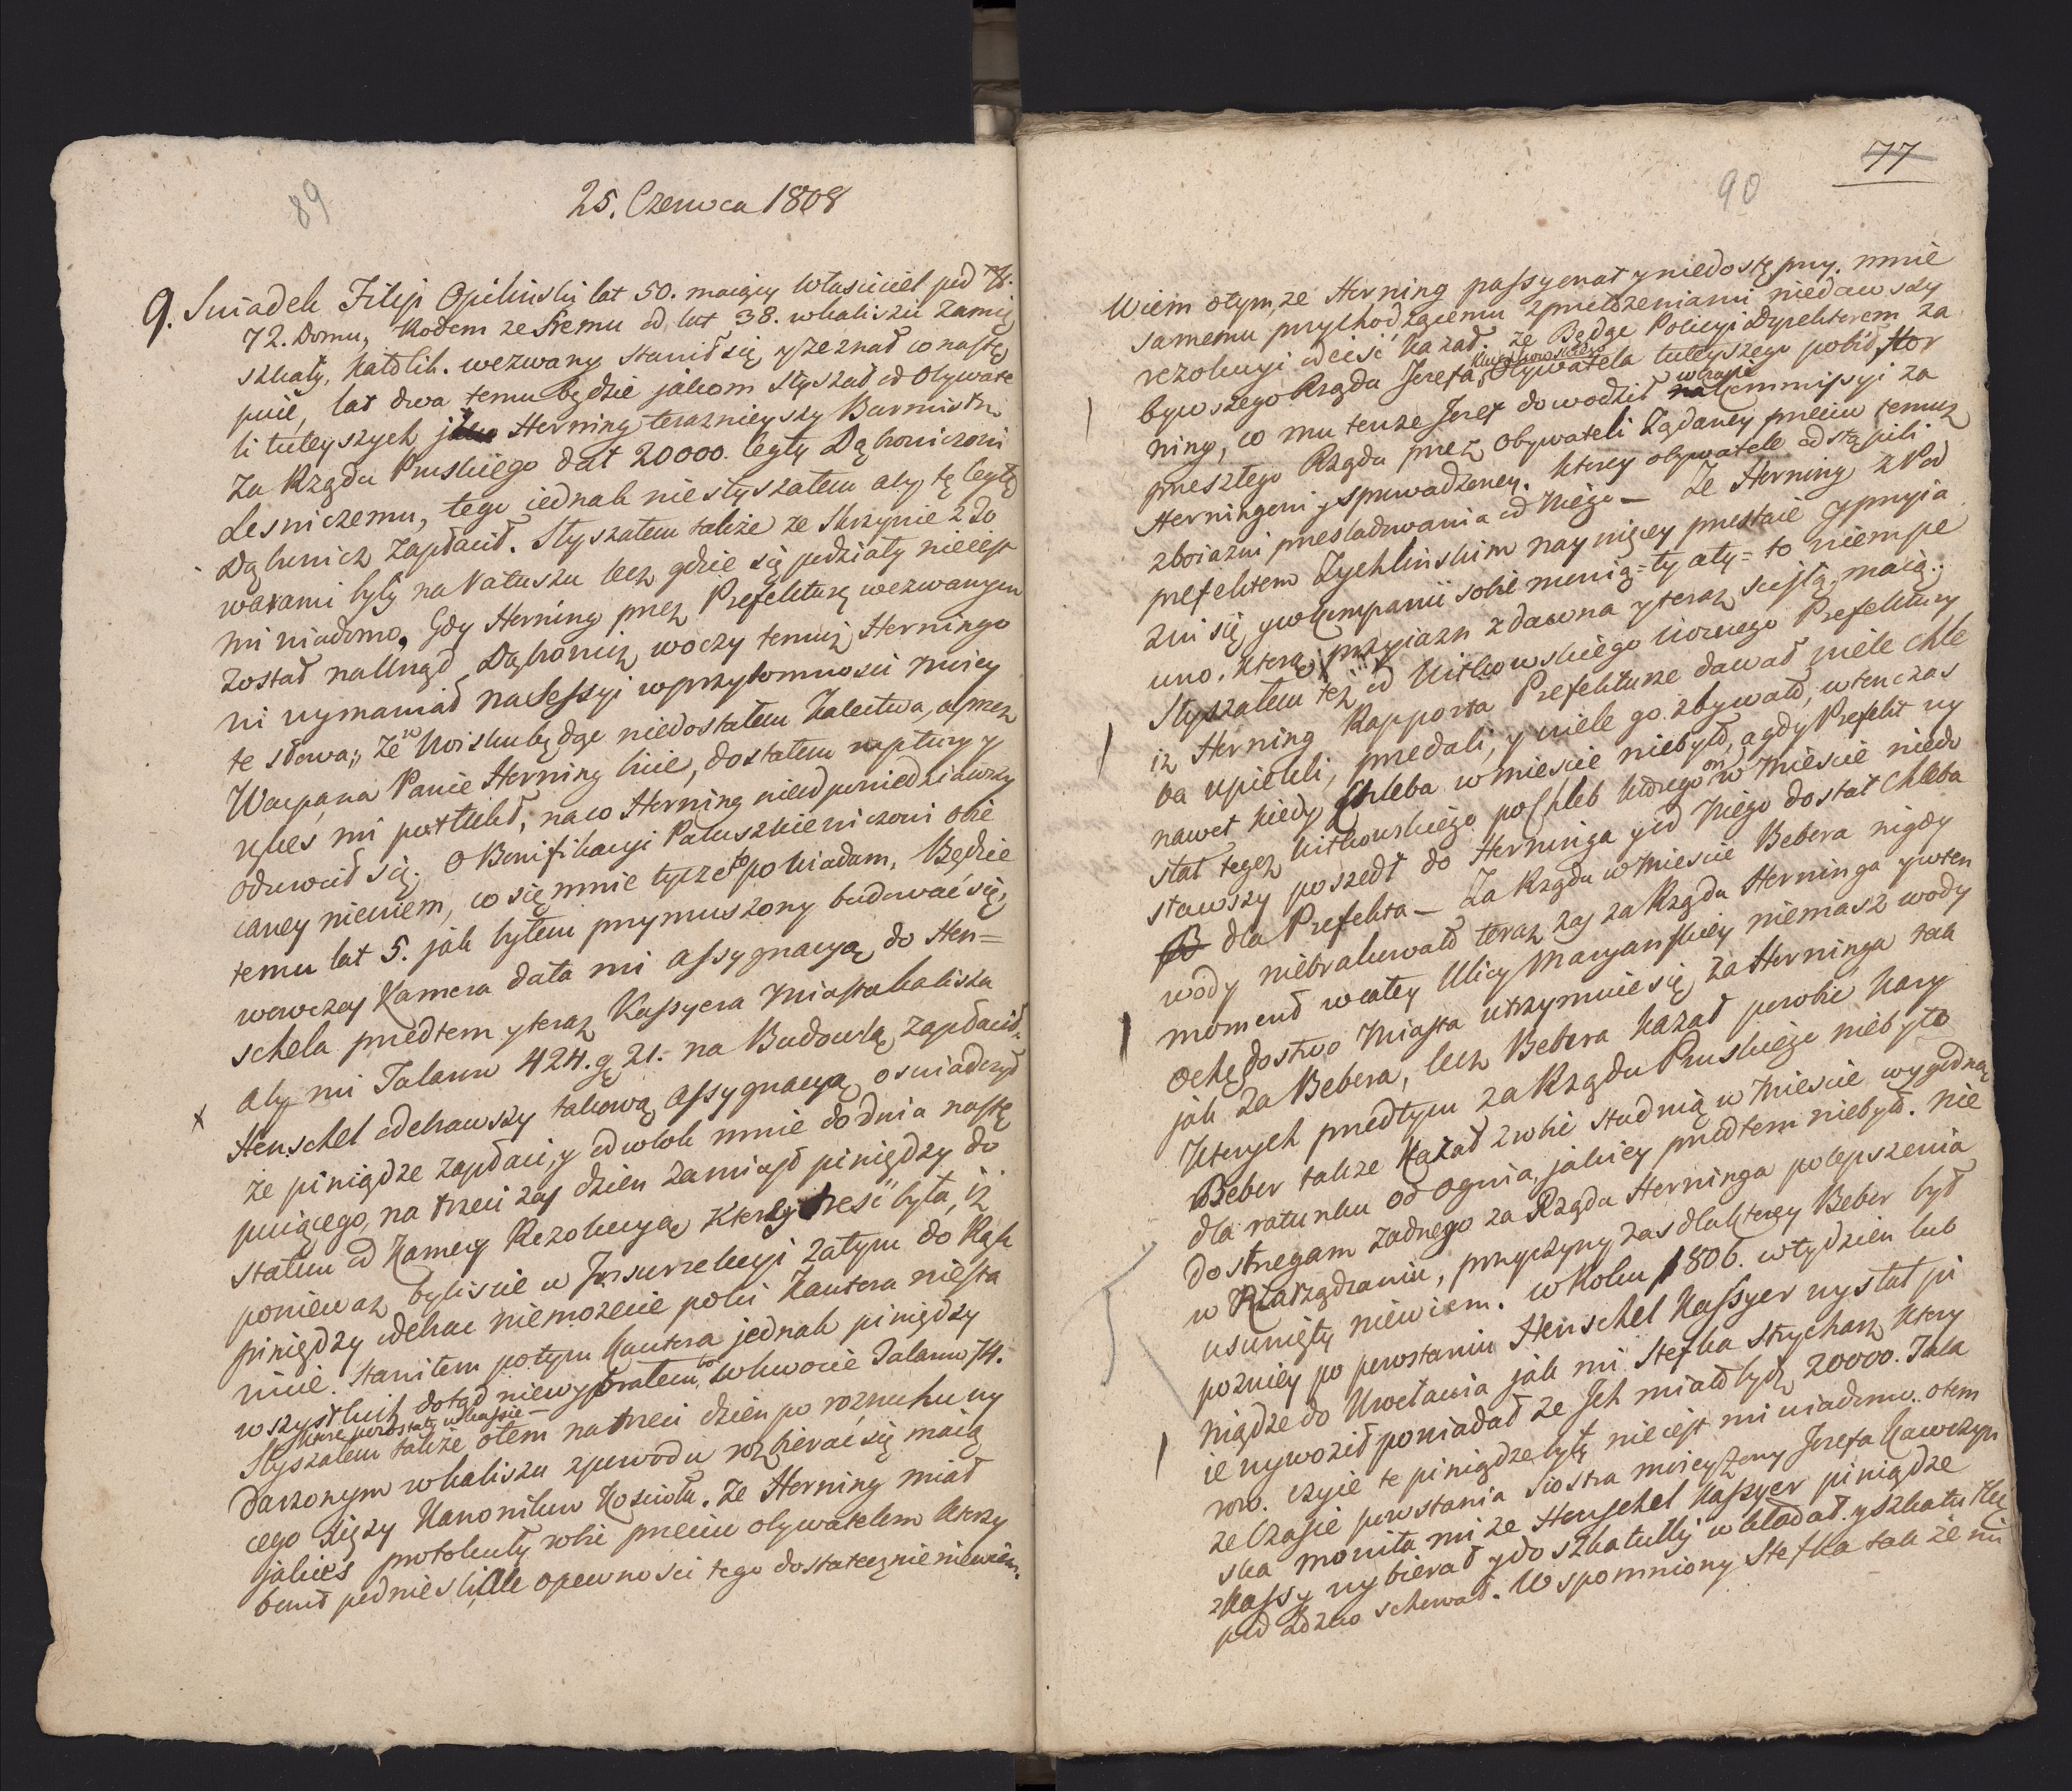 89
25. Czerwca 1808
9. Swiadek Filip Opielinski lat 50. maiący własciciel pod N.
72. Domu, Rodem ze Sremu od lat 38. w kaliszu zamie
szkały, katolik. wezwany stawił się y zeznał co nastę
puie, lat dwa temu będzie jakom słyszał od Obywate
li tuteyszych Herning teraznieyszy Burmistrz
za Rządu Pruskiego dał 20000. cegły Dąbrowiczowi
Lesniczemu, tego iednak nie słyszałem aby tę cegłę
Dąbrowicz zapłacił. Słyszałem także ze Skrzynie z to
warami były na Ratuszu lecz gdzie się podziały nieiest
mi wiadomo. Gdy Herning przez Prefekturę wezwanym
został na Urząd Dąbrowicz w oczy temuż Herningo
wi wymawiał na Sessyi w przytomnosci moiey
te słowa; Ze w Woisku będąc niedostałem kalectwa, a przez
Waspana Panie Herning kiie, dostałem ruptury y
nos mi potłukł, na co Herning nieodpowiedziawszy
odwrocił się. O Bonifikacyi Paluszkiewiczowi obie
caney niewiem, co się mnie tycze to powiadam, Będzie
temu lat 5. jak byłem przymuszony budować się,
wowczas Kamera dała mi assygnacyą do Hen=
schela przedtem y teraz Kassyera Miasta kalisza
aby mi Talarow 424. gg 21. na Budowlą zapłacił.
x Henschel odebrawszy takową assygnacyą oswiadczył
że piniądze zapłaci, y odwlok mnie do dnia nastę
puiącego, na trzeci zas dzien zamiast piniędzy do
stałem od Kamery Rezolucyą ktorey tresć była, iż
poniewaz byliscie w Insurrekcyi zatym do Rąk
piniędzy odebrac niemozecie poki kautora niesta
wicie. Stawiłem potym kautora jednak piniędzy
wszystkich dotąd niewybrałem, bo w kwocie Talarow 74.
ktore pozostały w kassie —
Słyszałem także o tem na trzeci dzien po rozruchu wy
darzonym w kaliszu z powodu rozbierać się maią
cego Xięży Kanonikow Kosciołu. Ze Herning miał
jakies protokuły robic przeciw obywatelom ktorzy
bunt podniesli. Ale o pewnosci tego dostatecznie niewiem.
77
90
Wiem o tym, ze Herning passyonat y niedostępny. mnie
samemu przychodzącemu z przełożeniami niedawszy
rezolucyi odeisć kazał. ze Będąc Policyi Dyrektorem za
bywszego Rządu Jozefa Obywatela tuteyszego pobił Her
ning, co mu tenze Jozef dowodził w czasie kommissyi za
przeszłego Rządu przez Obywateli żądaney przeciw temuz
Herningowi y sprowadzoney. ktorey obywatele odstąpili
z boiazni przesladowania od niego — Ze Herning z Pod
prefektem Zychlinskim naywięcey przestaie y przyia
zni się, y w kompanii sobie mowią = ty aty = to niem pe
wno. ktorą przyiazn z dawna y teraz scisłą maią.
Słyszałem tez od Witkowskiego Woznego Prefektury
iz Herning Rapporta Prefekturze dawał wiele chle
ba upiekli, przedali, y wiele go zbywało, wtenczas
nawet kiedy chleba w miescie niebyło, a gdy Prefekt wy
słał tegoz Witkowskiego po chleb ktorego on w miescie niedo
stawszy poszedł do Herninga y od niego dostał chleba
dla Prefekta — Za Rządu w Miescie Bebera nigdy
wody niebrakowało teraz zas za Rządu Herninga y wten
moment w całey Ulicy Maryanskiey niemasz wody
Ochędostwo Miasta utrzymuie się za Herninga tak
jak za Bebera, lecz Bebera kazał porobic kary
ktorych przedtym za Rządu Pruskiego niebyło
Beber takze kazał zrobic studnią w Miescie wygodną
dla ratunku od ognia, jakiey przedtem niebyło. nie
dostrzegam zadnego za Rządu Herninga polepszenia
w Rozrządzaniu, przyczyny zas dla ktorey Beber był
usunięty niewiem. w Roku 1806. w tydzien lub
pozniey po powstaniu Henschel kassyer wysłał pi
niądze do Wrocławia jak mi Stefka Strycharz ktory
ie wywoził powiadał ze Ich miało bydz 20000. Tala
row. czyie te piniądze były nie iest mi wiadomo. o tem
ze czasie powstania siostra moiey zony Jozefa kawczyn
ska mowiła mi ze Henschel kassyer piniądze
z kassy wybierał y do szkatułki wkładał. y szkatułkę
pod łozko schował. Wspomniony Stefka tak że mi